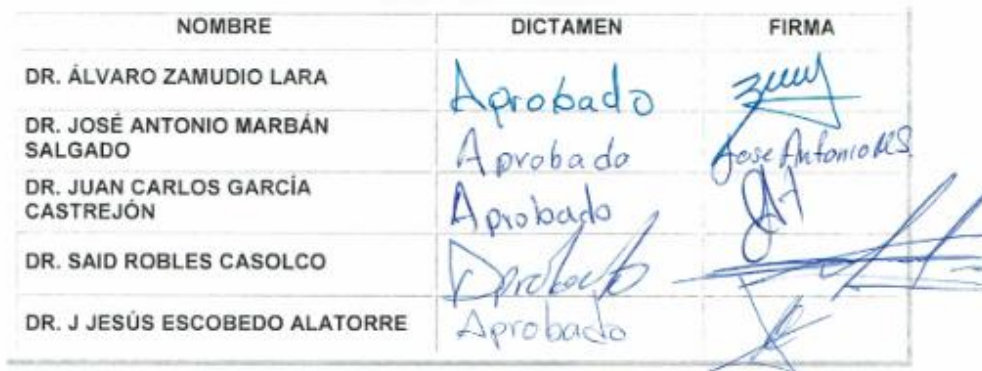 NOMBRE DICTAMEN FIRMA
DR. ÁLVARO ZAMUDIO LARA Aprobado
DR. JOSÉ ANTONIO MARBÁN
SALGADO Aprobado Jose Antonio M.S.
DR. JUAN CARLOS GARCÍA
CASTREJÓN Aprobado
DR. SAID ROBLES CASOLCO Aprobado
DR. J JESÚS ESCOBEDO ALATORRE Aprobado